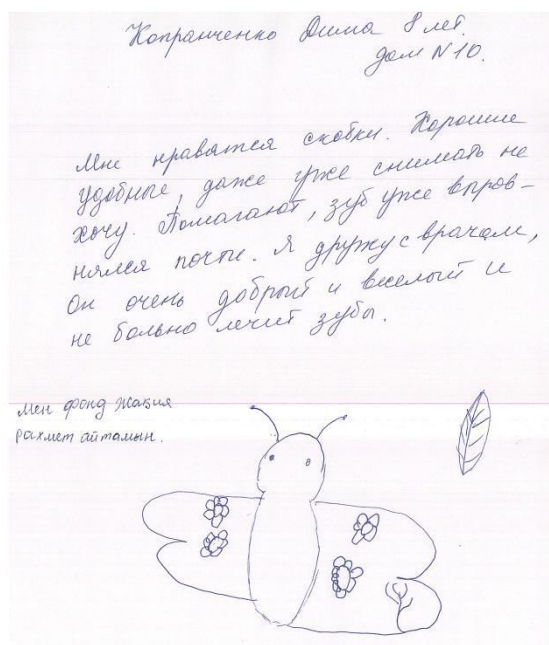 Копранченко Дима 8 лет.
дом N 10.
Мне нравятся скобки. Хорошие
удобные, даже уже снимать не
хочу. Помагают, зуб уже выров-
нялся почти. Я дружу с врачом,
он очень добрый и веселый и
не больно лечит зубы.
Мен фонд Жабия
рахмет айтамын.